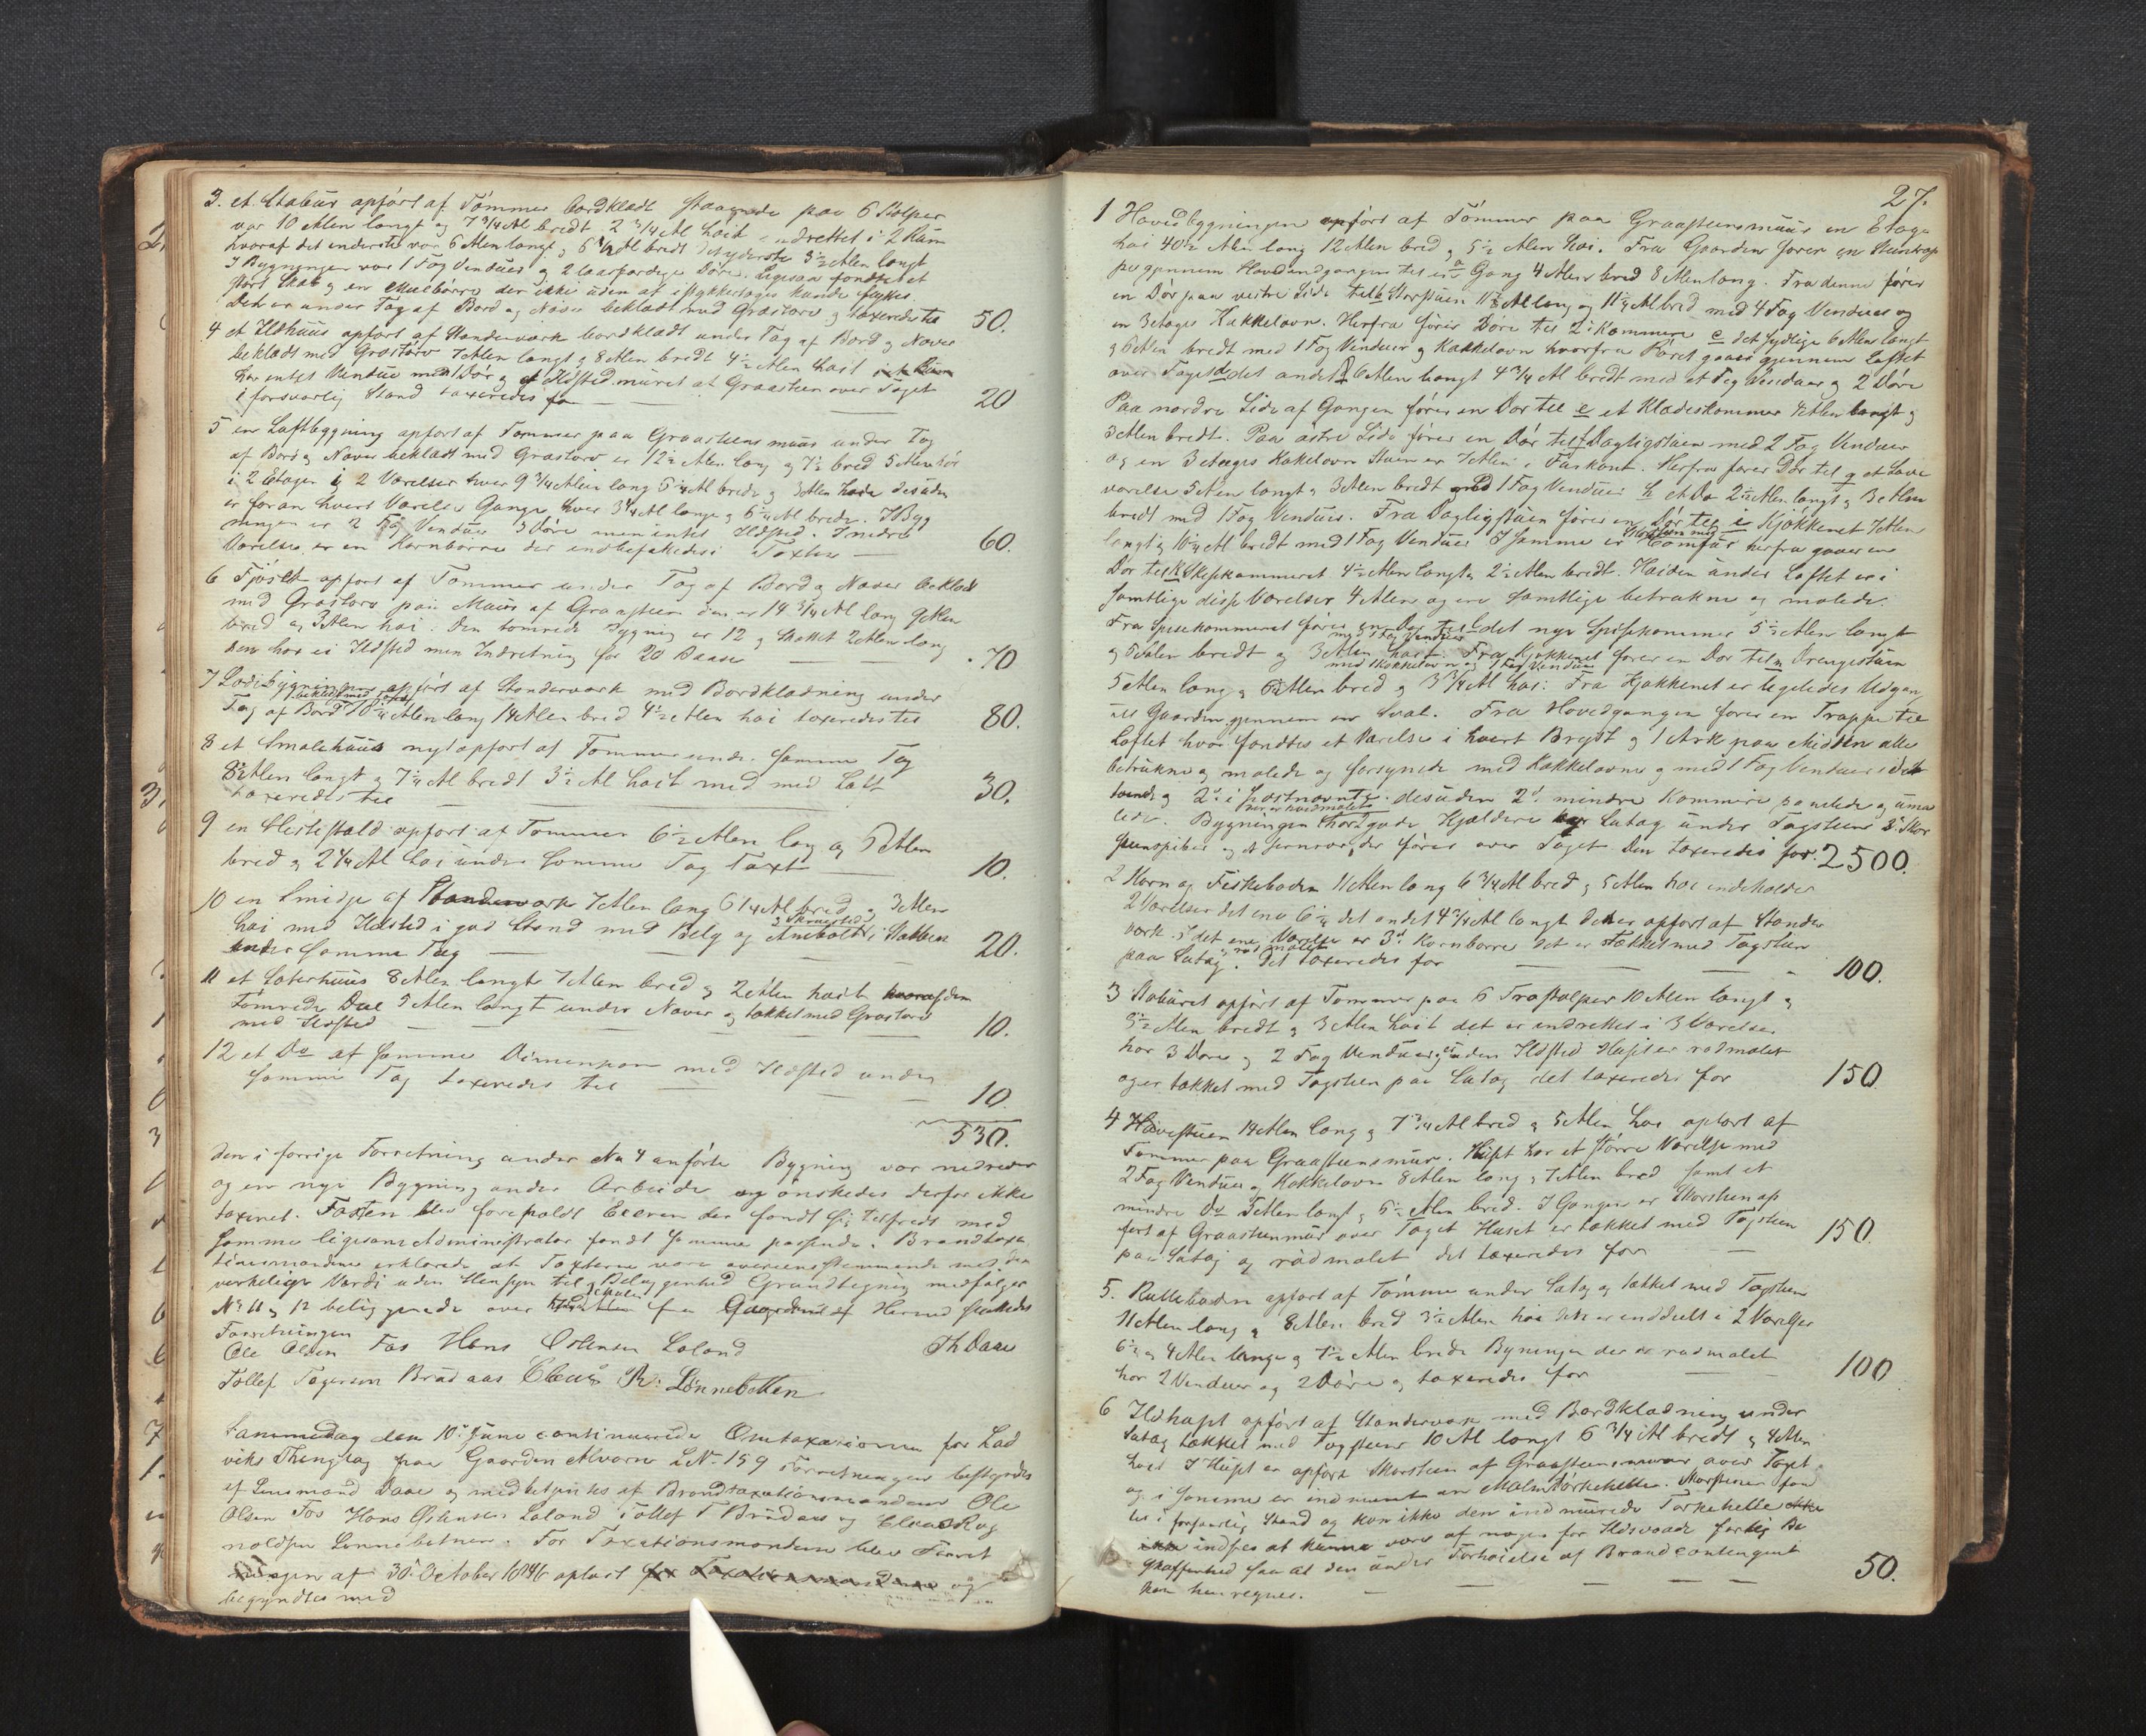 3. et Stabuur opført af Tømmer bordklædt staaende paa 6 Stolper
var 10 Alen langt og 7 3/4 Al bredt 2 3/4 Al høit indrettet i 2 Rum
hvoraf det inderste var 6 Alen langt, 6 Al bredt det yderste 3 1/2 Alen langt
I Bygningen var 1 Fag Vinduer og 2 laasfærdige Døre. Ligesaa fandtes et
stort Skab og en Meelbørre der ikke uden at istykkertages kunde flyttes.
Den er under Tag af Bord og Næver beklædt med Græstorv og taxeredes til 50.
4 et Ildhuus opført af Standerværk bordklædt under Tag af Bord og Næver
beklædt med Græstørv 7 Alen langt og 8 Alen bredt 4 1/2 Alen høit
har intet Vindue men 1 Dør og et Ildsted muret af Graasteen over Taget
i forsvarlig Stand taxeredes for 20
5 en Loftbygning opført af Tømmer paa Graasteens muur under Tag
af Bord og Næver beklædt med Græstorv er 12 1/2 Alen lang og 7 1/2 bred 5 Alen høi
i 2 Etager i 2 Værelser hver 9 3/4 Alen lang 6 1/4 Al brede og 3 Alen høie desuden
er foran hvert Værelse Gange hver 3 1/4 Al lange og 6 1/4 Al brede. I Byg
ningen er 2 Fag Vinduer 3 Døre men intet Ildsted. I nedre
Værelse er en Kornbørre der indbefattedes i Taxten 60.
6 Fjøset opført af Tømmer under Tag af Bord og Næver beklædt
med Græstorv paa Muur af Graasteen den er 14 3/4 Al lang 9 Alen
bred og 3 Alen høi. Den tømrede Bygning er 12 og Skottet 2 Alen lang
den har ei Ildsted men Indretning for 20 Baase 70
7 Ladebygningen opført af Standerværk med Bordklædning under
beklædt med Torv
Tag af Bord 10 1/4 Alen lang 14 Alen bred 4 1/2 Alen høi taxeredes til 80.
8 et Smalehuus nyt opført af Tømmer under samme Tag
8 1/2 Alen langt og 7 1/4 Al bredt 3 1/2 Al høit med med Loft
taxeredes til 30.
9 en Hestestald opført af Tømmer 6 1/2 Alen lang og 5 Alen
bred og 2 1/4 Al høi under samme Tag Taxt 10.
10 en Smidje af Standerværk 7 Alen lang 6 1/4 Al bred og 3 Alen
høi med Ildsted i god Stand med Belg og Ambolt i Stabben
under samme Tag 20.
11 et Sæterhuus 8 Alen langt 7 Alen bred og 2 Alen høit hvoraf den
tømrede Deel 5 Alen langt under Næver og tækket med Græstorv
med Ildsted 10.
12 et Do af samme Dimensjon med Ildsted under
samme Tag taxeredes til 10
530.
Den i forrige Forretning under No 4 anførte Bygning var nedreven
og en nye Bygning under Arbeide og ønskedes derfor ikke
taxeret. Taxten blev forelæst Eieren der fandt sig tilfreds med
samme ligesom Administrator fandt samme passende. Brandtaxa
tionsmændene erklærede at Taxterne vare overeensstemmende med den
virkelige Værdi uden Hensyn til Beliggenhed Grundtegning medfølger
No 11 og 12 beliggende over fra Gaarden Hermed sluttedes
Forretningen
Ole Olsen Fos Hans Ostensen Loland Th Daae
Tollef Tøgersen Brad aas Claus R: Lønnebotten
Sammedag den 10de Juni continuerede Omtaxationen for Lad
viks Thinglag paa Gaarden Alværn L No 159 Forretningen bestyredes
af Lensmand Daae og medbetjentes af Brandtaxationsmændene Ole
Olsen Fos Hans Ostensen Loland Tollef T Bradaas og Claus Reg
noldsen Lønnebotnen. For Taxationsmændene blev Forret
ningen af 30te October 1846 oplæst for Taxationsmændene og
begyndtes med
27.
1 Hovedbygningen opført af Tømmer paa Graasteensmuur en Etage
høi 40 1/2 Alen lang 12 Alen bred og 5 1/2 Alen høi. Fra Gaarden fører en Steentrap
pe gjennem Hovedindgangen til en a Gang 4 Alen bred 8 Alen lang. Fra denne fører
en Dør paa vestre Side til b Storstuen 11 1/2 Al lang og 11 1/2 Al bred med 4 Fag Vinduer og
en 3 etages Kakkelovn. Herfra fører Døre til 2de Kammere c det sydlige 6 Alen langt
og 6 Alen bredt med 1 Fag Vinduer og Kakkelovn hvorfra Røret gaaer gjennem Loftet
over Taget d det andet 6 Alen langt 4 3/4 Al bredt med et Fag Vinduer og 2 Døre
Paa nordre Side af Gangen fører en Dør til e et Klædeskammer 4 Alen langt og
3 Alen bredt. Paa østre Side fører en Dør til f Dagligstuen med 2 Fag Vinduer
og en 3 etages Kakelovn Stuen er 7 Alen i Fiirkant. Herfra fører Dør til g et Sove
værelse 5 Alen langt og 3 Alen bredt med 1 Fag Vinduer h et Do 2 1/2 Alen langt og 3 Alen
bredt med 1 Fag Vinduer. Fra Dagligstuen fører en Dør til i Kjøkkenet 7 Alen
Skorsteen med
langt og 10 1/4 Al bredt med 1 Fag Vinduer I samme er Comfur herfra gaaer en
Dør til k Spisekammeret 4 1/2 Alen langt og 2 1/2 Alen bredt. Høiden under Loftet er i
samtlige disse Værelser 4 Alen og ere samtlige betrukne og malede.
Fra Spisekammeret fører en Dør til l det nye Spisekammer 5 1/2 Alen langt
med 1 Fag Vinduer
og 5 Alen bredt og 3 Alen høit. Fra Kjøkkenet fører en Dør til m Drengestuen
med Kakkelovn og 1 Fag Vinduer
5 Alen lang og 6 1/2 Alen bred og 3 3/4 Al høi: Fra Kjøkkenet er ligeledes Udgang
til Gaarden gjennem en Sval. Fra Hovedgangen fører en Trappe til
Loftet hvor fandtes et Værelse i hvert Bryst og 1 Ark paa Midten alle
betrukne og malede og forsynede med Kakkelovne og med 1 Fag Vinduer i det
2de i sidstnævnte. desuden 2de mindre Kammere panelede og uma
lede. Bygningen har gode Kjeldere Sutag under Tagsteen 2de Skor
steenspiber og et Jernrør, der fører over Taget. Den taxeredes for. 2500.
2 Korn og Fiskeboden 11 Alen lang 6 3/4 Al bred og 5 Alen høi indeholder
2 Værelser det ene 6 1/4 det andet 4 3/4 Al langt Den er opført af Stander
værk. I det ene Værelse er 3de Kornbørrer det er tækket med Tagsteen
rødmalet
paa Sutag. Det taxeredes for 100.
3 Staburet opført af Tømmer paa 6 Træstolper 10 Alen langt og
9 1/2 Alen bredt og 3 Alen høit det er indrettet i 3 Værelser
har 3 Døre og 2 Fag Vinduer, er uden Ildsted Huset er rødmalet
og er tækket med Tagsteen paa Sutag det taxeredes for 150.
4 Havestuen 14 Alen lang og 7 3/4 Al bred og 5 Alen høi opført af
Tømmer paa Graasteensmuur. Huset har et større Værelse med
2 Fag Vinduer og Kakkelovn 8 Alen lang og 7 Alen bred samt et
mindre Do 5 Alen langt og 6 1/2 Alen bred. I Gangen er Skorsteen op
ført af Graasteenmuur over Taget Huset er tækket med Tagsteen
paa Sutag og rødmalet det taxeredes for 150
5. Rulleboden opført af Tømmer under Sutag og tækket med Tagsteen
11 Alen lang og 8 Alen bred 3 1/2 Alen høi den er inddeelt i 2 Værelser
6 1/2 og 4 Alen lange og 7 1/2 Alen brede Bygningen der er rødmalet
har 2 Vinduer og 2 Døre og taxeredes for 100
6 Ildhuset opført af Standerværk med Bordklædning under
Sutag tækket med Tagsteen 10 Al langt 6 3/4 Al bredt og 4 Alen
høit I Huset er opført Skorsteen af Graasteensmuur over Taget
og i samme er indmuret en Malmtørkehelle. Skorstenen fand
tes i forsvarlig Stand og kan ikke den indmurede Tørkehelle
indsees at kunne være af nogen for Ildsvaade farlig Be
skaffenhed saa at den under Forhøielse af Brandcontingent
kan henregnes. 50.